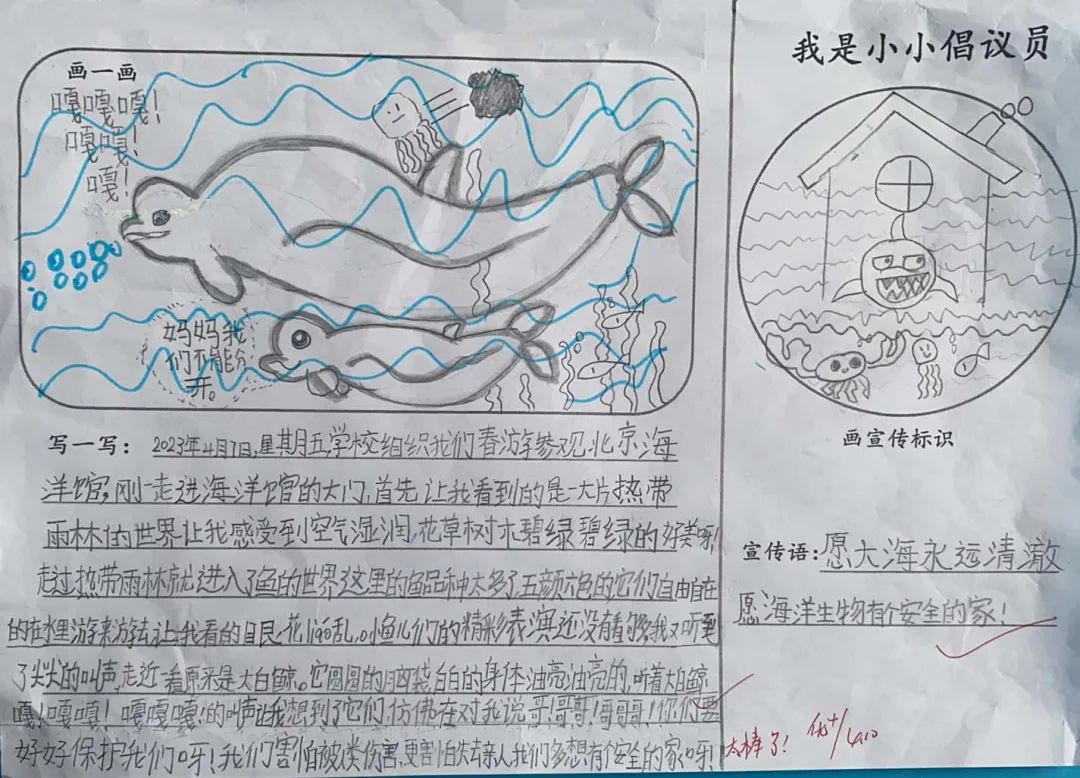 画一画
嘎嘎嘎!
嘎嘎!
嘎!
妈妈我
们不能分
开。
写一写: 2023年4月7日,星期五,学校组织我们春游参观北京海
洋馆,刚一走进海洋馆的大门,首先让我看到的是一大片热带
雨林的世界让我感受到空气湿润,花草树木碧绿碧绿的好美呀!
走过热带雨林就进入了鱼的世界这里的鱼品种太多了五颜六色的它们自由自在
的在水里游来游去,让我看的目艮花瞭乱。小鱼儿们的精彩表演还没有看够,我又听到
了尖尖的叫声,走近一看原来是大白鲸。它圆圆的脑袋白白的身体油亮油亮的,听着大白鲸
嘎!嘎嘎!嘎嘎嘎!的叫声让我想到了它们仿佛在对我说哥!哥哥!哥哥哥!你们要
好好保护我们呀!我们害怕被人类伤害,更害怕失去亲人我们多想有个安全的家呀!
我是小小倡议员
画宣传标识
宣传语:愿大海永远清澈
愿海洋生物有个安全的家!
太棒了! 优+